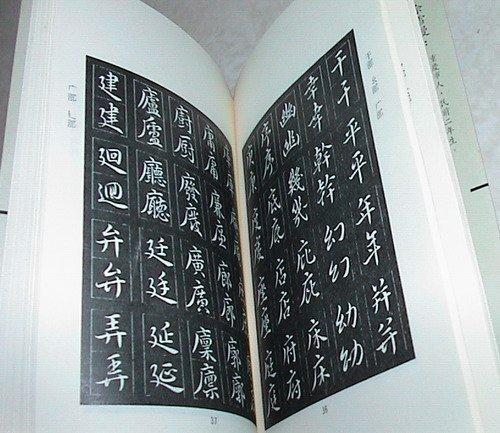 干部 幺部 广部
干干 平平 年年 并并
幸幸 幹幹 幻幻 幼幼
幽幽 幾幾 庇庇 床床
序序 底底 店店 府府
座座 庭庭
庸庸 廉廉 廊廊 廓廓
廚廚 廢廢 廣廣 廩廩
廬廬 廳廳 廷廷 延延
建建 廻廻 弁弁 弄弄
广部 廴部
37